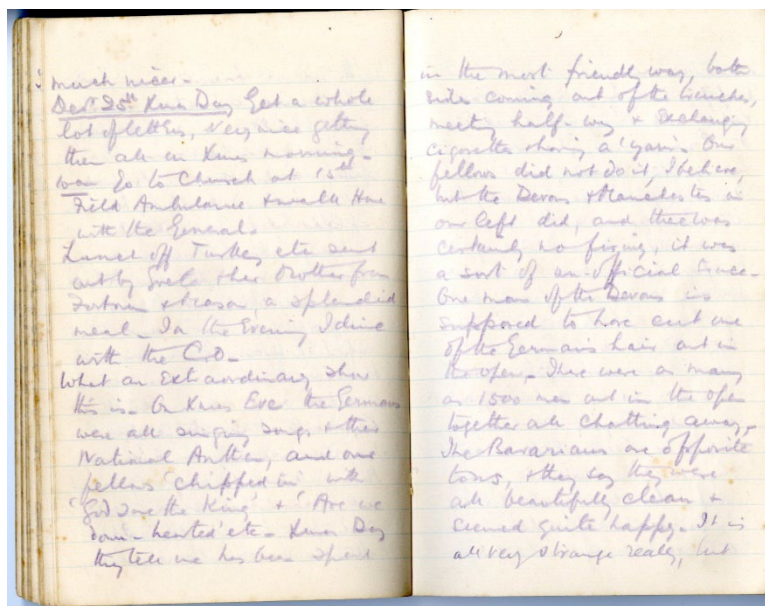 much nicer -
Dec. 25th Xmas Day Get a whole
lot of letters, very nice getting
them all on Xmas morning -
Go to Church at 15th
Field Ambulance & walk Home
with the General.
Lunch off Turkey etc sent
out by & her Mother from
Fortnum & Mason, a splendid
meal - In the Evening I dine
with the C.O -
What an Extraordinary show
this is - On Xmas Eve the Germans
were all singing songs & their
National Anthem, and our
fellows 'chipped in' with
'God Save the King' & 'Are we
down-hearted' etc - Xmas Day
they tell me has been spent
in the most friendly way, both
sides coming out of the trenches,
meeting half-way & Exchanging
cigarettes & having a 'yarn'. Our
fellows did not do it, I believe,
but the Devons & Manchesters on
our left did, and there was
certainly no firing, it was
a sort of un-official truce -
One man of the Devons is
supposed to have cut one
of the German's hair out in
the open - There were as many
as 1500 men out in the open
together all chatting away -
The Bavarians are opposite
to us, & they say they were
all beautifully clean &
seemed quite happy - It is
all very strange really, but